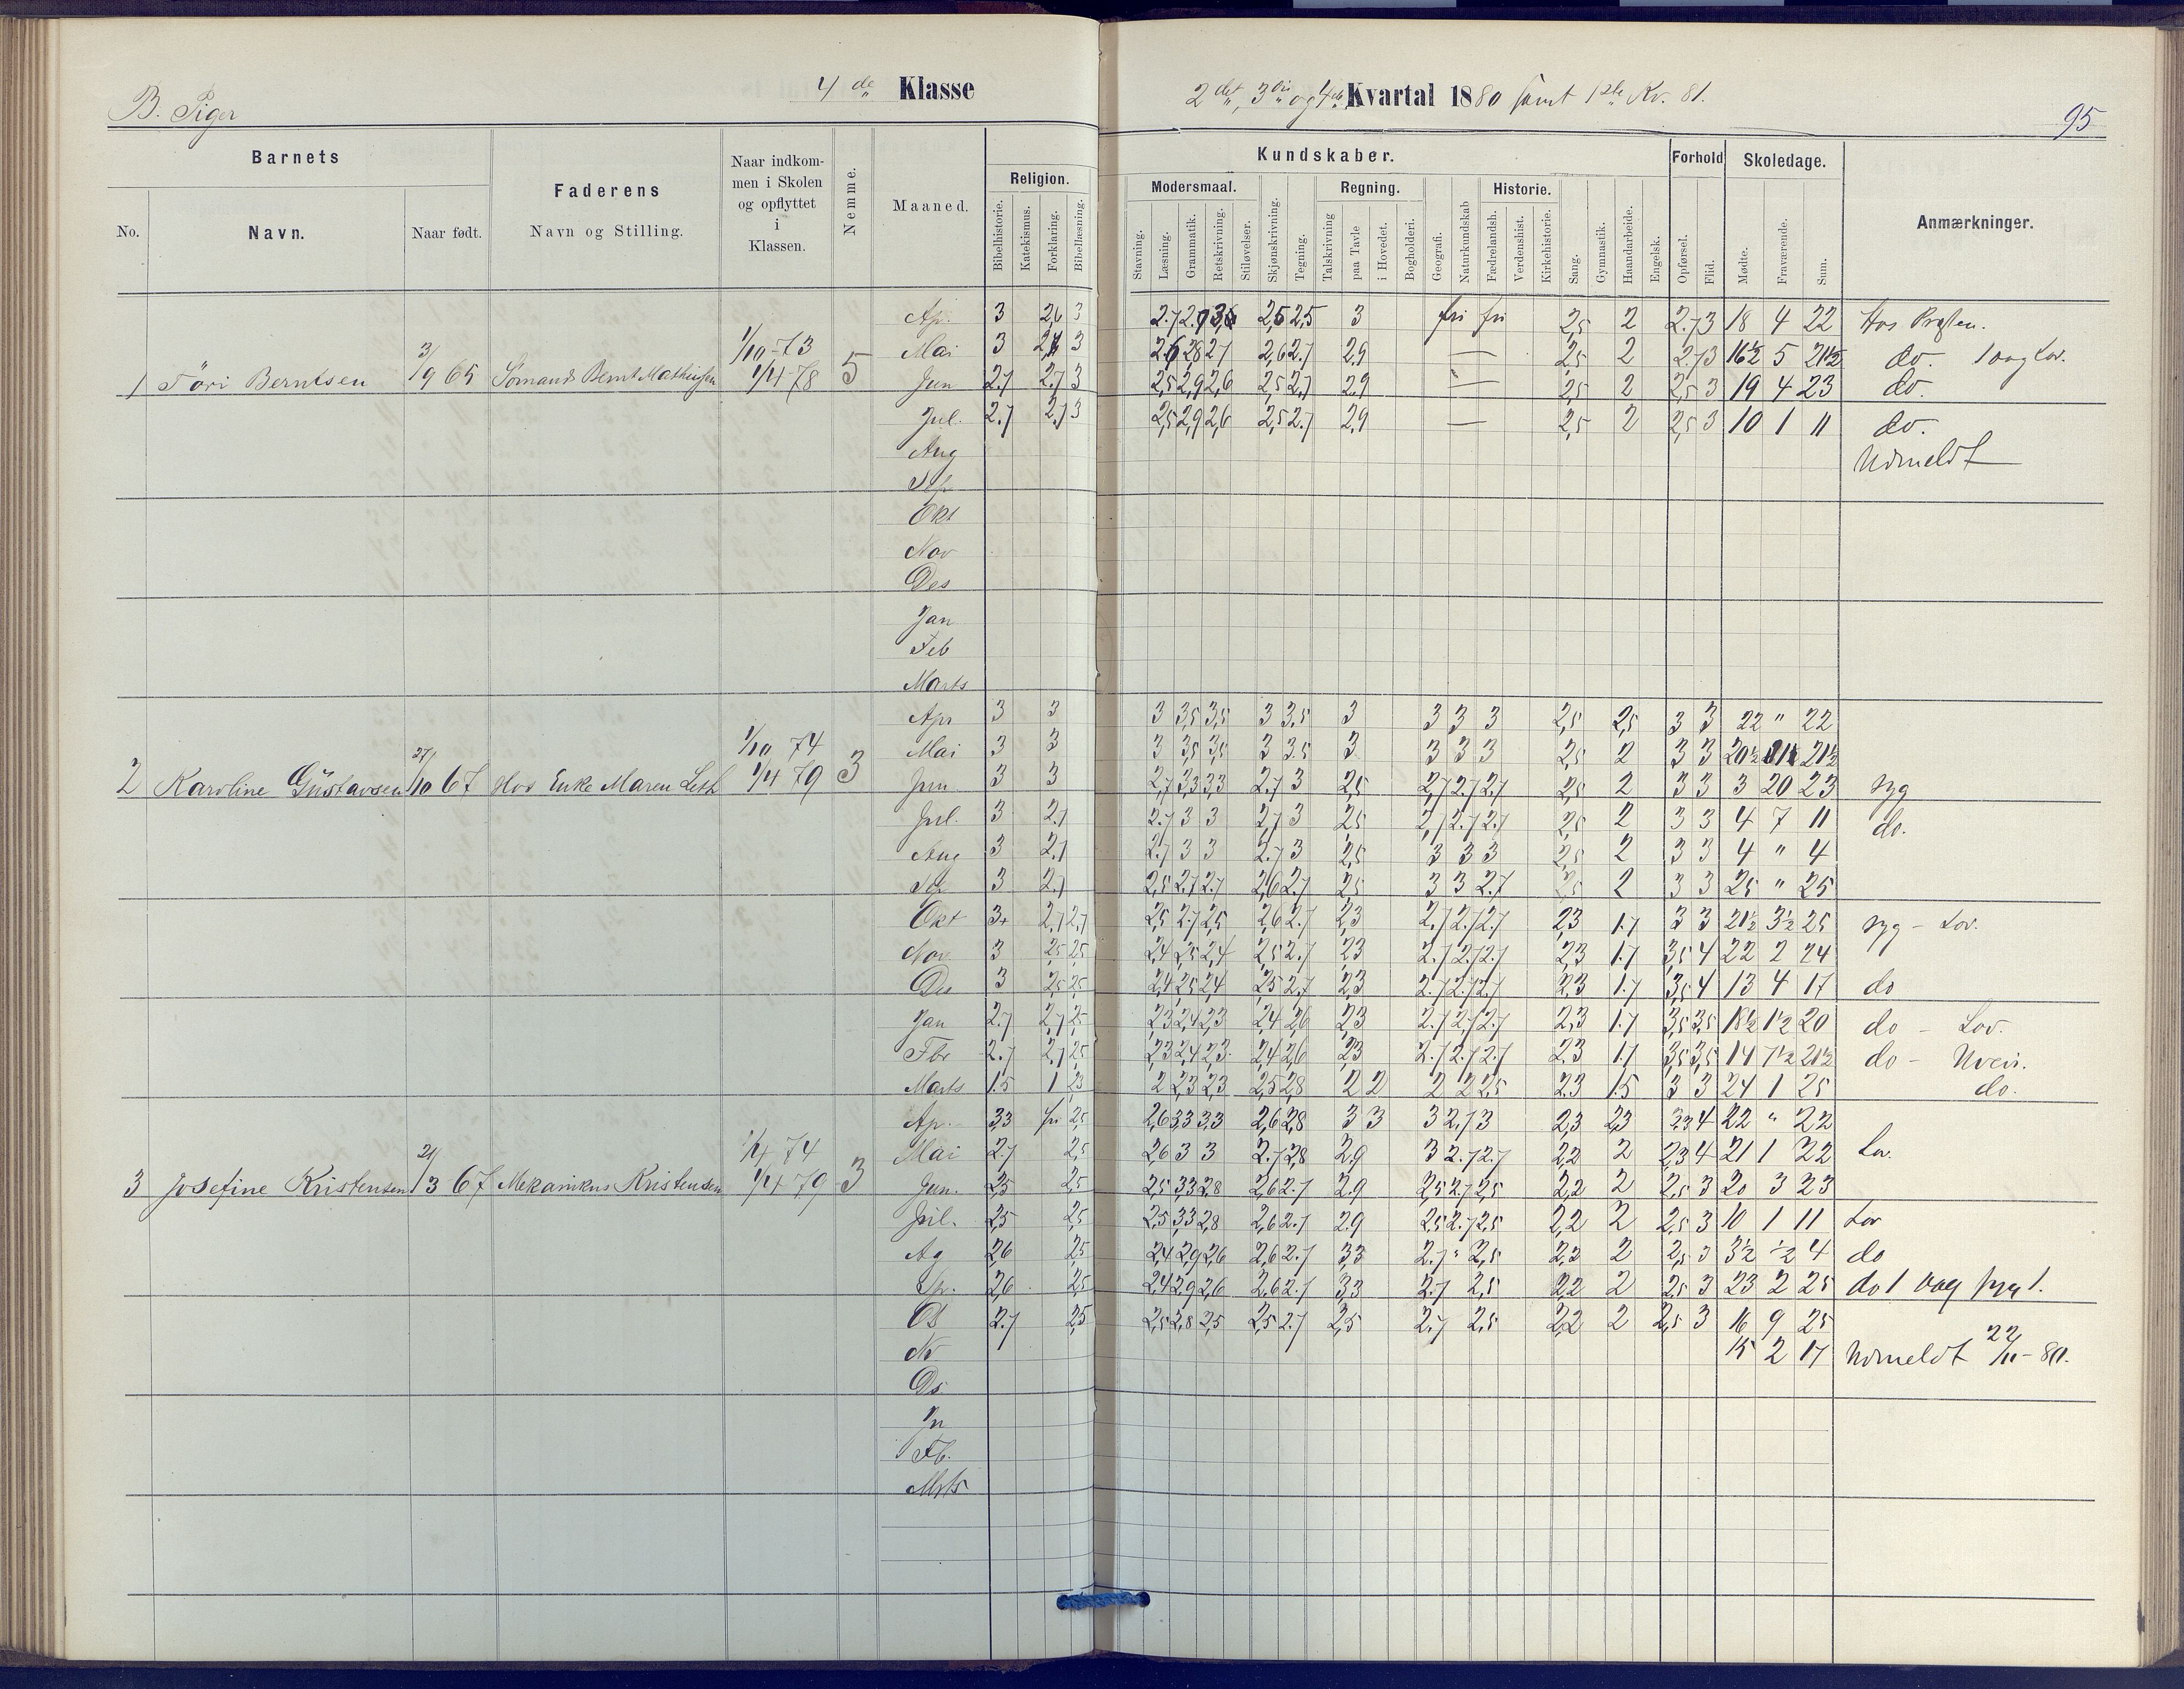 B. Piger
4 de Klasse
2 det, 3 die og 4 de Kvartal 1880 samt 1ste Kv. 81.
95
Barnets
No.
Navn.
Naar født.
Faderens
Navn og Stilling.
Naar indkom-
men i Skolen
og opflyttet
i
Klassen.
Nemme.
Maaned.
Kundskaber.
Religion.
Bibelhistorie.
Katekismus.
Forklaring.
Bibellæsning.
Modersmaal.
Stavning.
Læsning.
Grammatik.
Retskrivning.
Stiløvelser.
Skjønskrivning.
Tegning.
Regning.
Talskrivning
paa Tavle
i Hovedet.
Bogholderi.
Geografi.
Naturkundskab
Historie.
Fædrelandsh.
Verdenshist.
Kirkehistorie.
Sang.
Gymnastik.
Haandarbeide.
Engelsk.
Forhold
Opførsel.
Flid.
Skoledage.
Mødte.
Fraværende.
Sum.
Anmærkninger.
1 Töri Berntsen 3/9 65 Sömand Bernt Mathiesen 1/10-73 1/4-78 5
Ap. 3 2,6 3 2.7 2.9 2,5 2,5 3 fri fri 2,5 2 2.7 3 18 4 22 Hos Presten.
Mai 3 3 2,6 2,8 2,7 2,6 2.7 2,9 — 2,5 2 2.7 3 16½ 5 21½ do. 1 dag Lov.
Jun 2.7 2.7 3 2,5 2,9 2,6 2,5 2.7 2,9 — 2,5 2 2,5 3 19 4 23 do.
Jul. 2.7 2.7 3 2,5 2,9 2,6 2,5 2.7 2,9 — 2,5 2 2,5 3 10 1 11 do.
Aug Udmeldt
Sep
Okt
Nov
Des
Jan
Feb
Marts
2 Karoline Gustavsen 27/10 67 Hos Enke Maren Leth 1/10 74 1/4 79 3
Apr 3 3 3 3,5 3,5 3 3,5 3 3 3 3 2,5 2,5 3 3 22 " 22
Mai 3 3 3 3,5 3,5 3 3.5 3 3 3 3 2,5 2 3 3 20½ 1 21½
Jun 3 3 2,7 3,3 3,3 2.7 3 2,5 2,7 2.7 2.7 2,5 2 3 3 3 20 23 syg
Jul. 3 2.7 2.7 3 3 2,7 3 2,5 2,7 2.7 2.7 2,5 2 3 3 4 7 11 do.
Aug 3 2.7 2.7 3 3 2.7 3 2,5 3 3 3 2,5 2 3 3 4 " 4
Sep 3 2.7 2,5 2.7 2.7 2,6 2.7 2,5 3 3 2.7 2,5 2 3 3 25 " 25
Okt 3+ 2,7 2,7 2,5 2.7 2,5 2,6 2.7 2,3 2,7 2.7 2.7 2,3 1.7 3 3 21½ 3½ 25 syg - Lov.
Nov 3 2,5 2,5 2,4 2,5 2,4 2,5 2.7 2,3 2.7 2.7 2.7 2,3 1.7 3,5 4 22 2 24
Des 3 2,5 2,5 2,4 2,5 2,4 2,5 2.7 2,3 2.7 2.7 2.7 2,3 1.7 3,5 4 13 4 17 do
Jan 2.7 2,7 2,5 2,3 2,4 2,3 2,4 2,6 2,3 2.7 2,7 2.7 2,3 1.7 3,5 3,5 18½ 1½ 20 do - Lov.
Fbr 2.7 2.7 2,5 2,3 2,4 2,3 2,4 2,6 2,3 2.7 2.7 2.7 2,3 1.7 3,5 3,5 14 7½ 21½ do - Uveir.
Marts 1.5 1 2,3 2 2,3 2,3 2,5 2,8 2 2 2 2 2,5 2.3 1.5 3 3 24 1 25 do.
3 Josefine Kristensen 21/3 67 Mekanikus Kristensen 1/4 74 1/4 79 3
Ap. 3,3 fri 2,5 2,6 3,3 3,3 2,6 2,8 3 3 3 2,7 3 2,3 2,3 2,3 4 22 " 22
Mai 2.7 2,5 2,6 3 3 2.7 2,8 2,9 3 2.7 2.7 2,2 2 2,3 4 21 1 22 Lov.
Jun. 2,5 2,5 2,5 3,3 2,8 2,6 2.7 2.9 2,5 2.7 2,5 2,2 2 2,5 3 20 3 23
Jul. 2,5 2,5 2,5 3,3 2,8 2,6 2.7 2.9 2,5 2.7 2,5 2,2 2 2,5 3 10 1 11 Lov
Ag 2,6 2,5 2,4 2,9 2,6 2,6 2.7 3,3 2.7 " 2,5 2,2 2 2,5 3 3½ ½ 4 do
Sp. 2,6 2,5 2,4 2,9 2,6 2,6 2.7 3,3 2.7 2,5 2,2 2 2,5 3 23 2 25 do 1 dag syg 1.
Ot 2.7 2,5 2,5 2,8 2,5 2,5 2.7 2,5 2.7 2,5 2,2 2 2,5 3 16 9 25
Nv 15 2 17 Udmeldt 22/11-80.
Ds
Jn
Fb.
Mrts